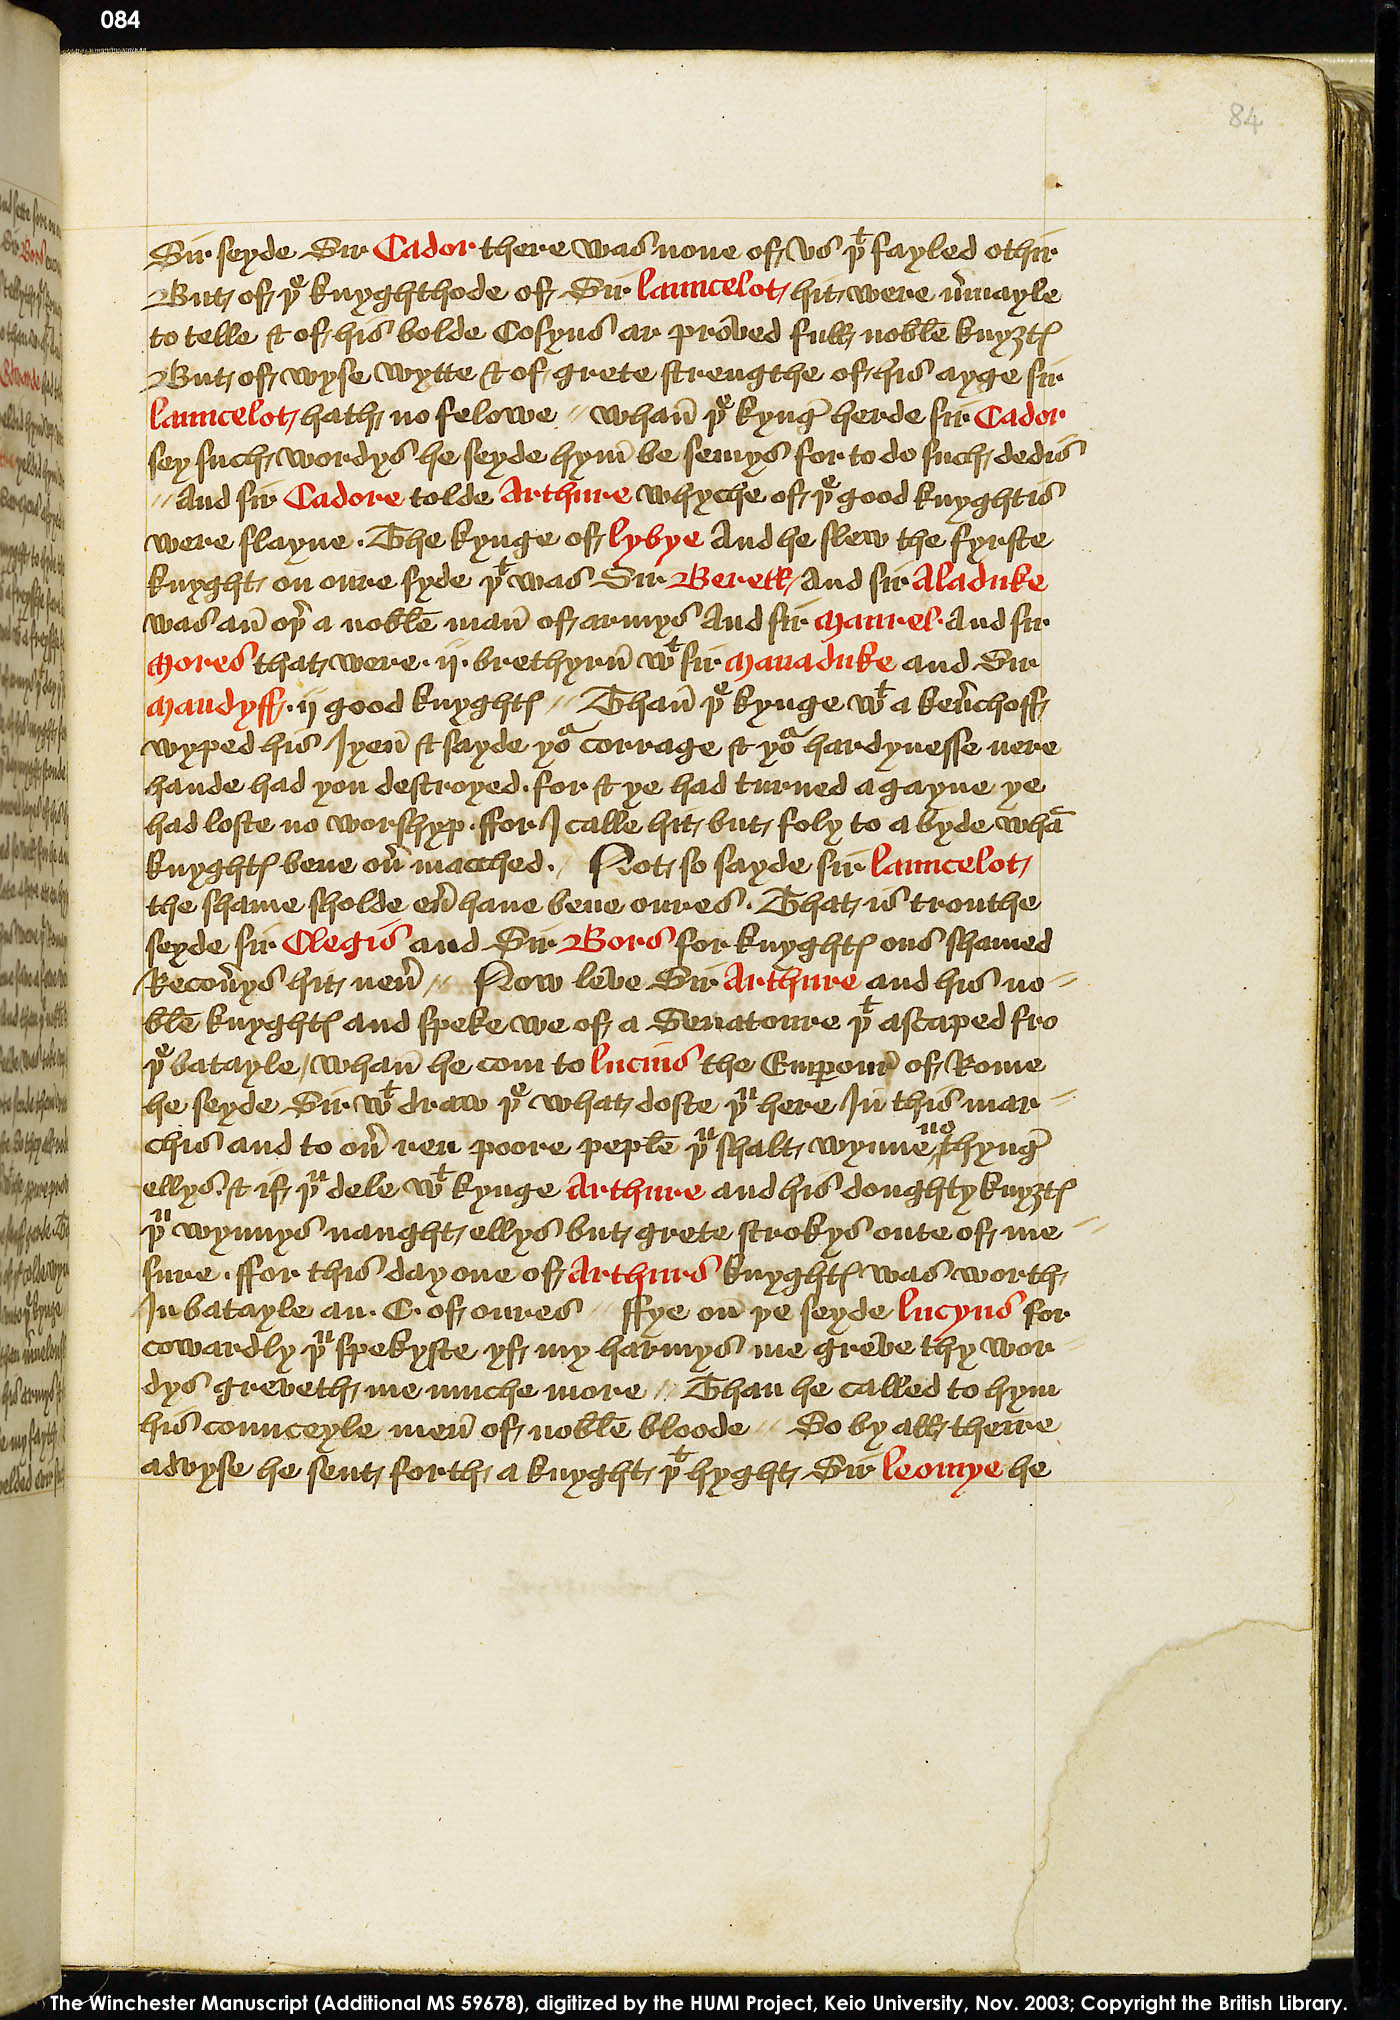 084
84
Sir seyde Sir Cador there was none of vs þt fayled othir
But of þe knyghthode of Sir launcelot hit were m̄vayle
to telle & of his bolde Cosyns ar proved full noble knyȝtꝭ
But of wyse wytte & of grete strengthe of his ayge sir
launcelot hath no felowe // whan̄ þe kyngꝭ herde sir Cador
sey such wordys he seyde hym̄ be semys for to do such dedis
// And sir Cadore tolde Arthure whyche of þe good knyghtis
were slayne . The kynge of lybye And he slew the fyrste
knyght on oure syde þt was Sir Berell And sir Aladuke
was an̄ oþ̄ a noble man̄ of armys And sir Maurel And sir
Mores that were .ij. brethyrn̄ wt sir Manaduke and Sir
Mandyff .ij good knyghtꝭ // Than̄ þe kynge wt a kerc̄hoff
wyped his Iyen̄ & sayde yor corrage & yor hardynesse nere
hande had you destroyed . for & ye had turned agayne ye
had loste no worshyp . ffor I calle hit but foly to abyde whā
knyghtꝭ bene ov̄ macched . // Not so sayde sir launcelot
the shame sholde ev̄ haue bene oures . That is trouthe
seyde sir Clegis and Sir Bors for knyghtꝭ ons shamed
Recov̄ys hit nev̄ // Now leve Sir Arthure and his no-
ble knyghtꝭ and speke we of a Senatoure þt ascaped fro
þe batayle / whan̄ he com to lucius the Emperour̄ of Rome
he seyde Sir wt draw þe what doste þu here In this mar-
chis and to ov̄ ren poore peple þu shalt wynne no thyngꝭ
ellys . & if þu dele wt kynge Arthure and his doughty knyȝtꝭ
þu wynnys naught ellys but grete strokys oute of me-
sure . ffor this day one of Arthurs knyghtꝭ was worth
In batayle an . C . of oures // ffye on̄ þe seyde lucyus for
cowardly þu spekyste yf my harmys me greve thy wor-
dys greveth me muche more // Than he called to hym
his counceyle men̄ of noble bloode // So by all theire
advyse he sent forth a knyght þt hyght Sir leomye he
The Winchester Manuscript (Additional MS 59678), digitized by the HUMI Project, Keio University, Nov. 2003; Copyright the British Library.